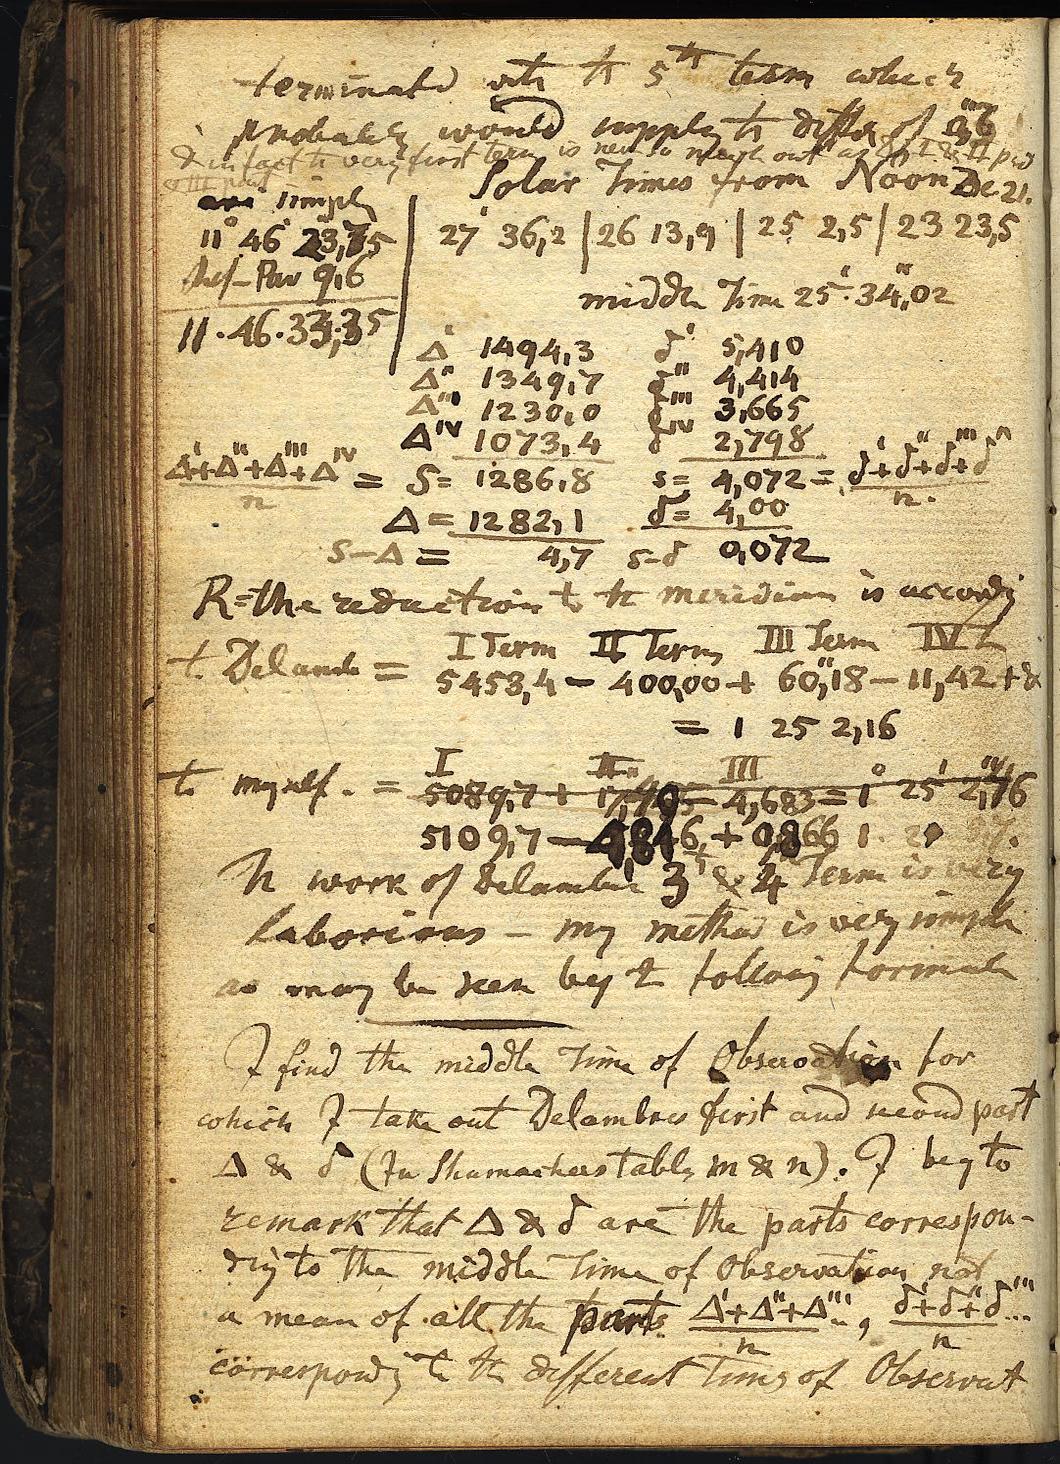 terminate with th 5th term which
probably would supply th differ of 0,6
& in fact th very first term is near so much out as & I & II part
Solar Times from Noon Dec 21.
simply
11° 46' 23,75 | 27' 36,2 | 26 13,9 | 25 2,5 | 23 23,5
Ref-Par 9,6
middle Time 25'.34",02
11.46.33,35
Δ' 1494,3 δ' 5,410
Δ'' 1349,7 δ'' 4,414
Δ''' 1230,0 δ''' 3,665
ΔIV 1073,4 δIV 2,798
Δ'+Δ''+Δ'''+ΔIV / n = S = 1286,8 s = 4,072 = δ'+δ''+δ'''+δIV / n.
Δ = 1282,1 δ = 4,00
S-Δ = 4,7 s-δ 0,072
R = the reduction to th meridian is accordg
t Delamb = I Term II Term III Term IV t
5453,4 - 400,00 + 60",18 - 11,42 + &
= 1 25 2,16
I II III
t myself. = 5089,7 + - 4,683 = 1° 25' 2,76
5109,7 - 4,846 + 0,866 1.
Th work of Delambre 3 & 4 Term is very
laborious - my method is very simple
as may be seen by t followig formula
I find the middle Time of Observation for
which I take out Delambres first and second part
Δ & δ (In Shumachers tables m & n). I beg to
remark that Δ & δ are the parts correspon-
dig to the middle Time of Observation not
a mean of all the parts Δ'+Δ''+Δ'''.. / n , δ'+δ''+δ'''... / n
correspondg to th different Times of Observat